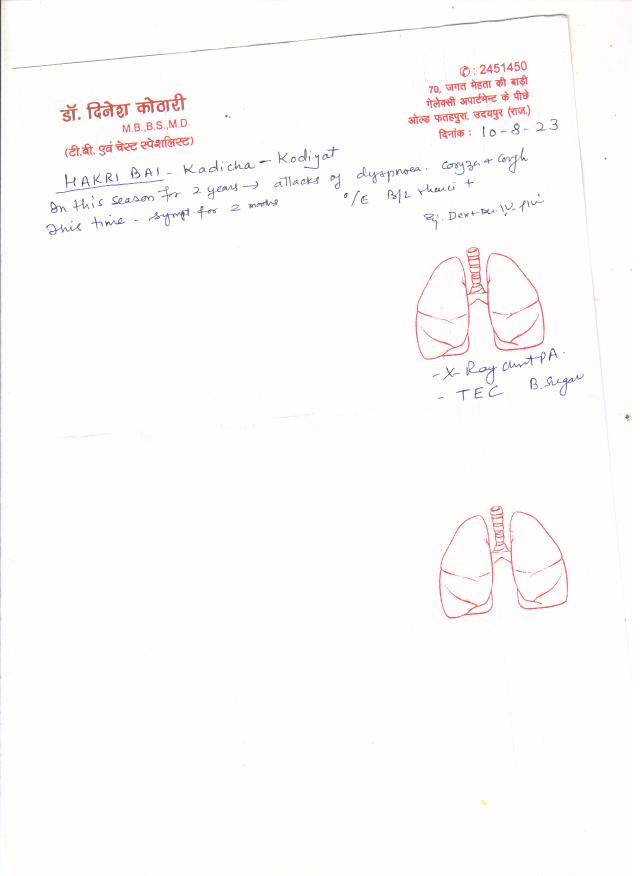 डॉ. दिनेश कोठारी
M.B.,B.S.,M.D.
(टी.बी. एवं चेस्ट स्पेशलिस्ट)
✆ : 2451450
70, जगत मेहता की बाड़ी
गेलेक्सी अपार्टमेन्ट के पीछे
ओल्ड फतहपुरा, उदयपुर (राज.)
दिनांक : 10-8-23
HAKRI BAI - Kadicha - Kodiyat
In this season for 2 years → attacks of dyspnoea. Coryza + Cough
This time - sympt. for 2 months o/E B/L rhonci +
- X-Ray chest PA.
- TEC B. Sugar